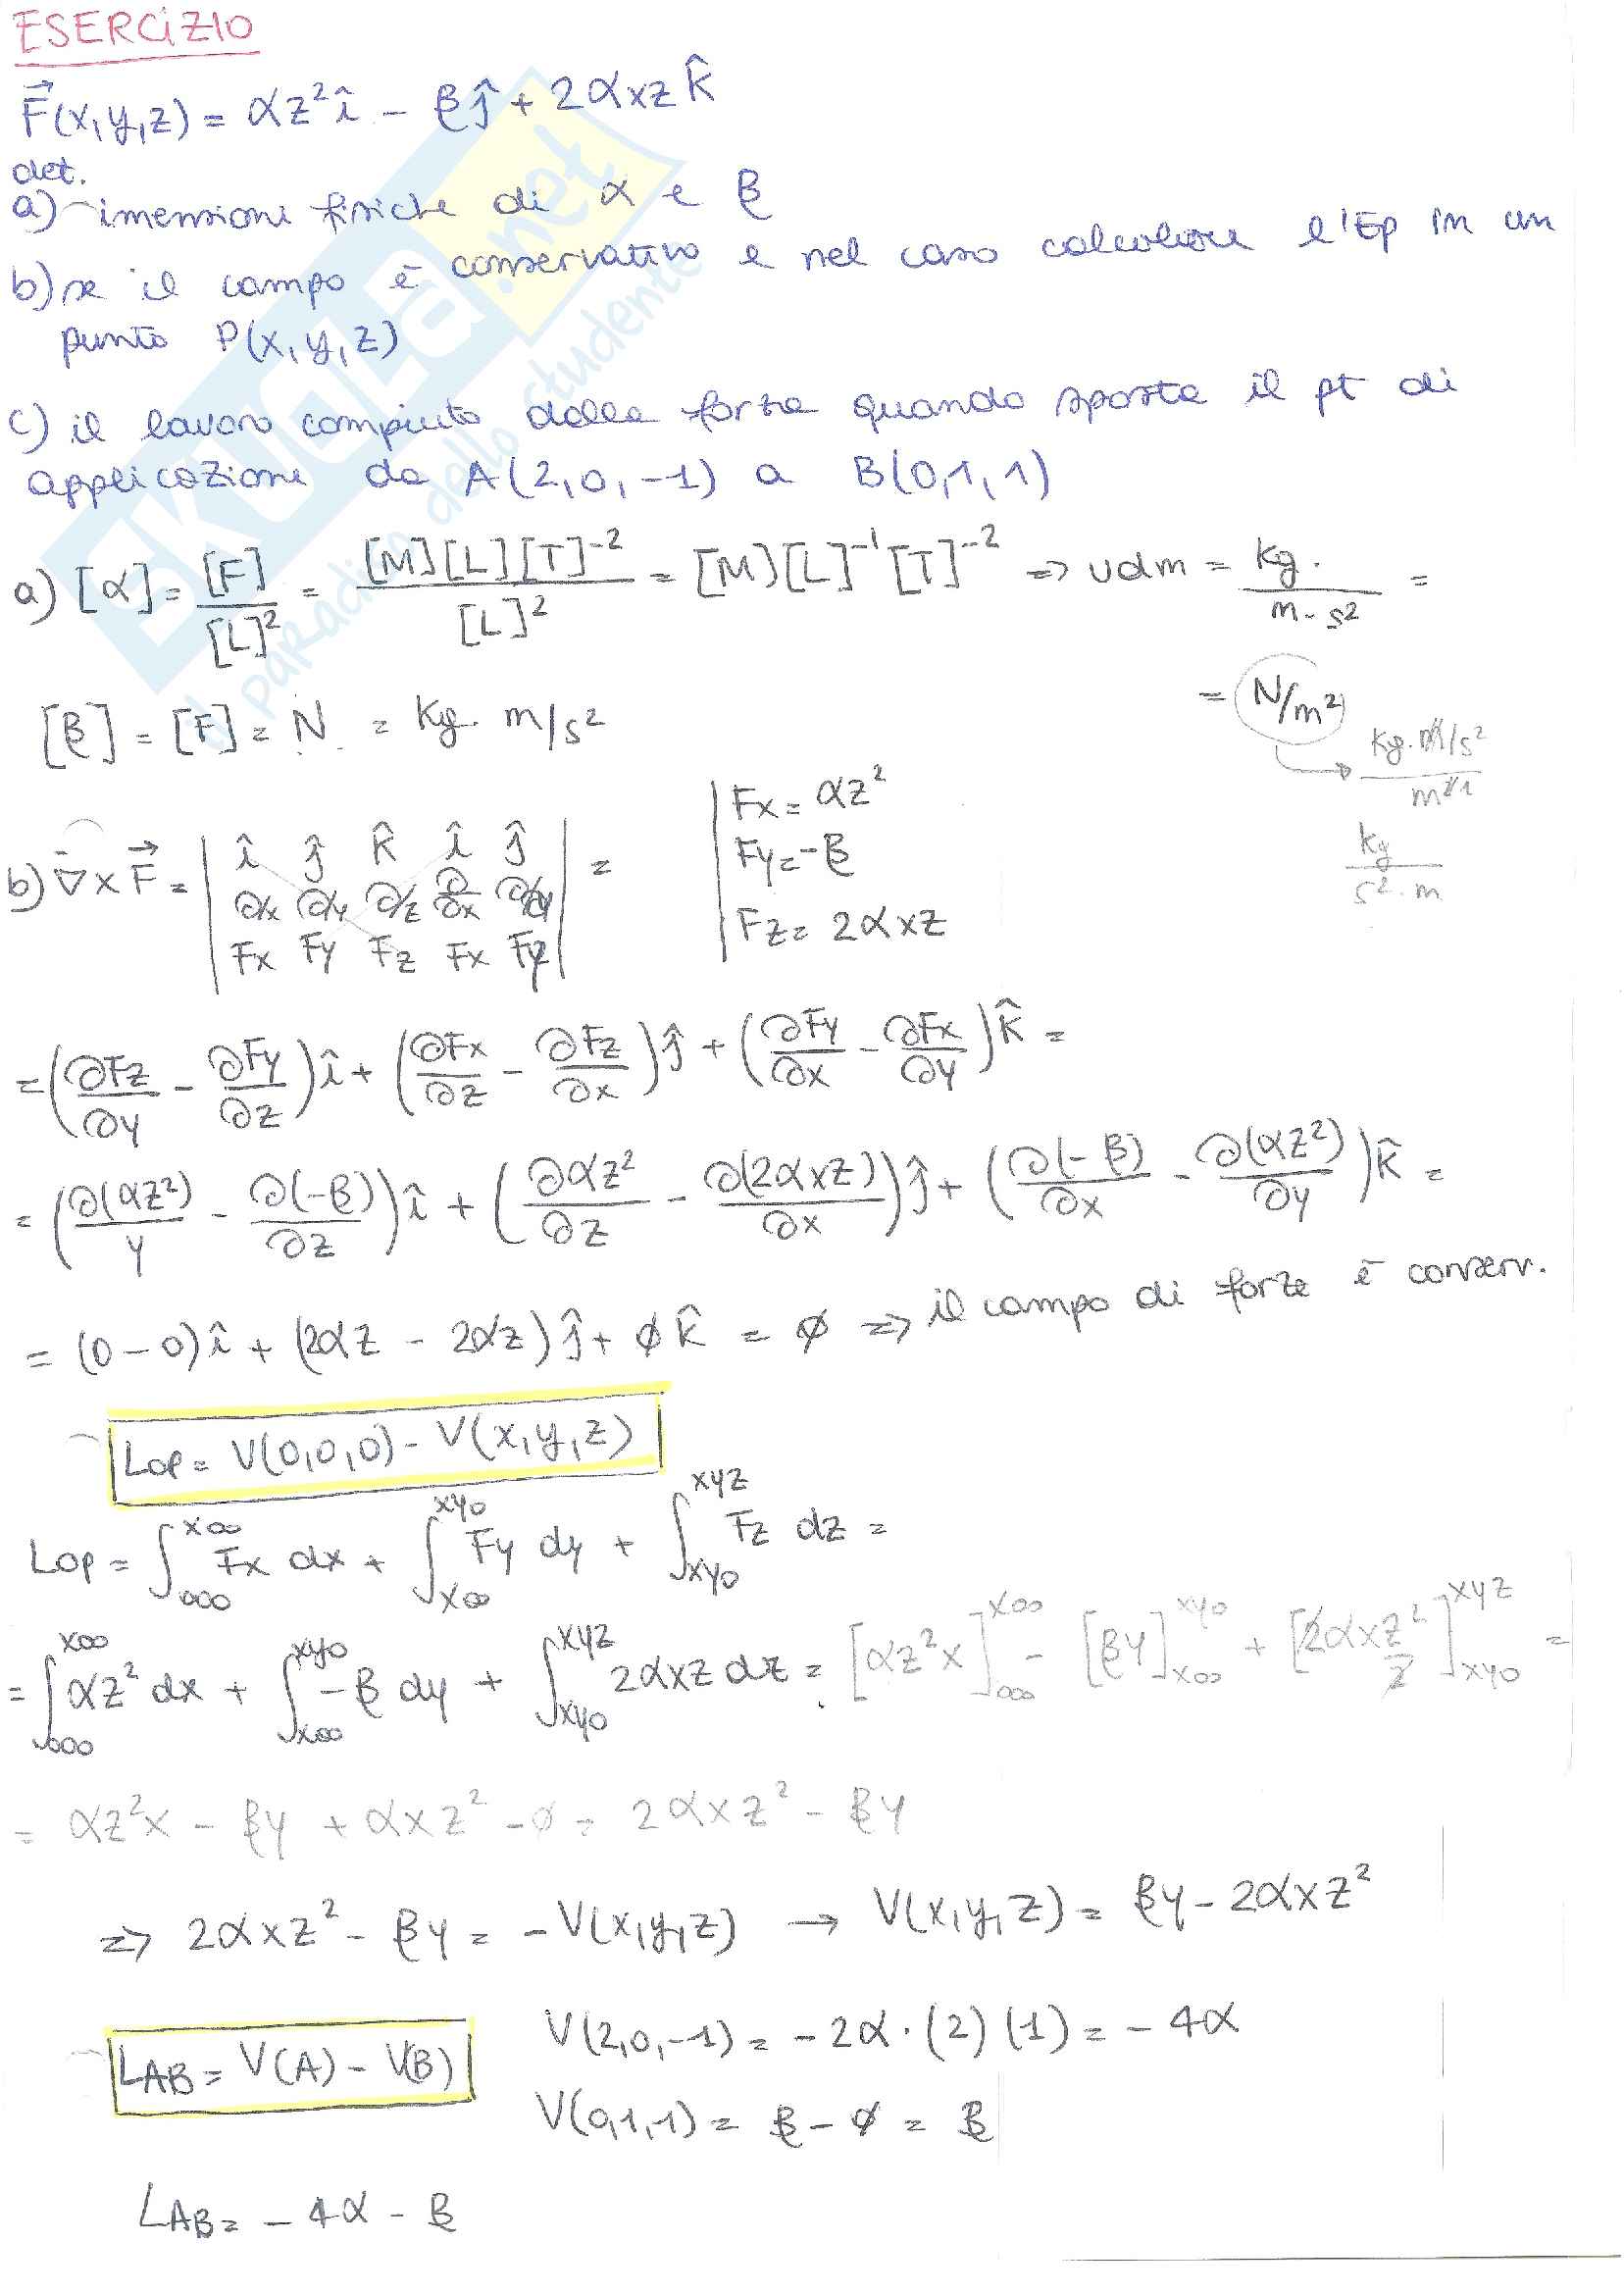 ESERCIZIO
F⃗(x,y,z) = αz² î - β ĵ + 2αxz k̂
det.
a) imensioni fisiche di α e β
b) se il campo è conservativo e nel caso calcolare l'Ep in un
punto P(x,y,z)
c) il lavoro compiuto dalla forza quando sposta il pt di
applicazione da A(2,0,-1) a B(0,1,1)
a) [α] = [F]/[L]² = [M][L][T]⁻²/[L]² = [M][L]⁻¹[T]⁻² => udm = kg./m·s² =
= N/m²
→ kg·m/s² / m²
kg / s²·m
[β] = [F] = N = kg· m/s²
b) ∇ x F⃗ = | î ĵ k̂ î ĵ | =
∂/x ∂/y ∂/z ∂/∂x ∂/∂y
Fx Fy Fz Fx Fy
Fx = αz²
Fy = -β
Fz = 2αxz
= (∂Fz/∂y - ∂Fy/∂z) î + (∂Fx/∂z - ∂Fz/∂x) ĵ + (∂Fy/∂x - ∂Fx/∂y) k̂ =
= (∂(αz²)/y - ∂(-β)/∂z) î + (∂αz²/∂z - ∂(2αxz)/∂x) ĵ + (∂(-β)/∂x - ∂(αz²)/∂y) k̂ =
= (0-0) î + (2αz - 2αz) ĵ + ∅ k̂ = ∅ => il campo di forze è conserv.
LOP = V(0,0,0) - V(x,y,z)
LOP = ∫₀₀₀^x00 Fx dx + ∫x00^xy0 Fy dy + ∫xy0^xyz Fz dz =
= ∫000^x00 αz² dx + ∫x00^xy0 -β dy + ∫xy0^xyz 2αxz dz = [αz²x]000^x00 - [βy]x00^xy0 + [2αxz²/2]xy0^xyz =
= αz²x - βy + αxz² - ∅ = 2αxz² - βy
=> 2αxz² - βy = -V(x,y,z) → V(x,y,z) = βy - 2αxz²
LAB = V(A) - V(B)
V(2,0,-1) = -2α·(2)(1) = -4α
V(0,1,1) = β - ∅ = β
LAB = -4α - β
SKUOLA.net
il paradiso dello studente